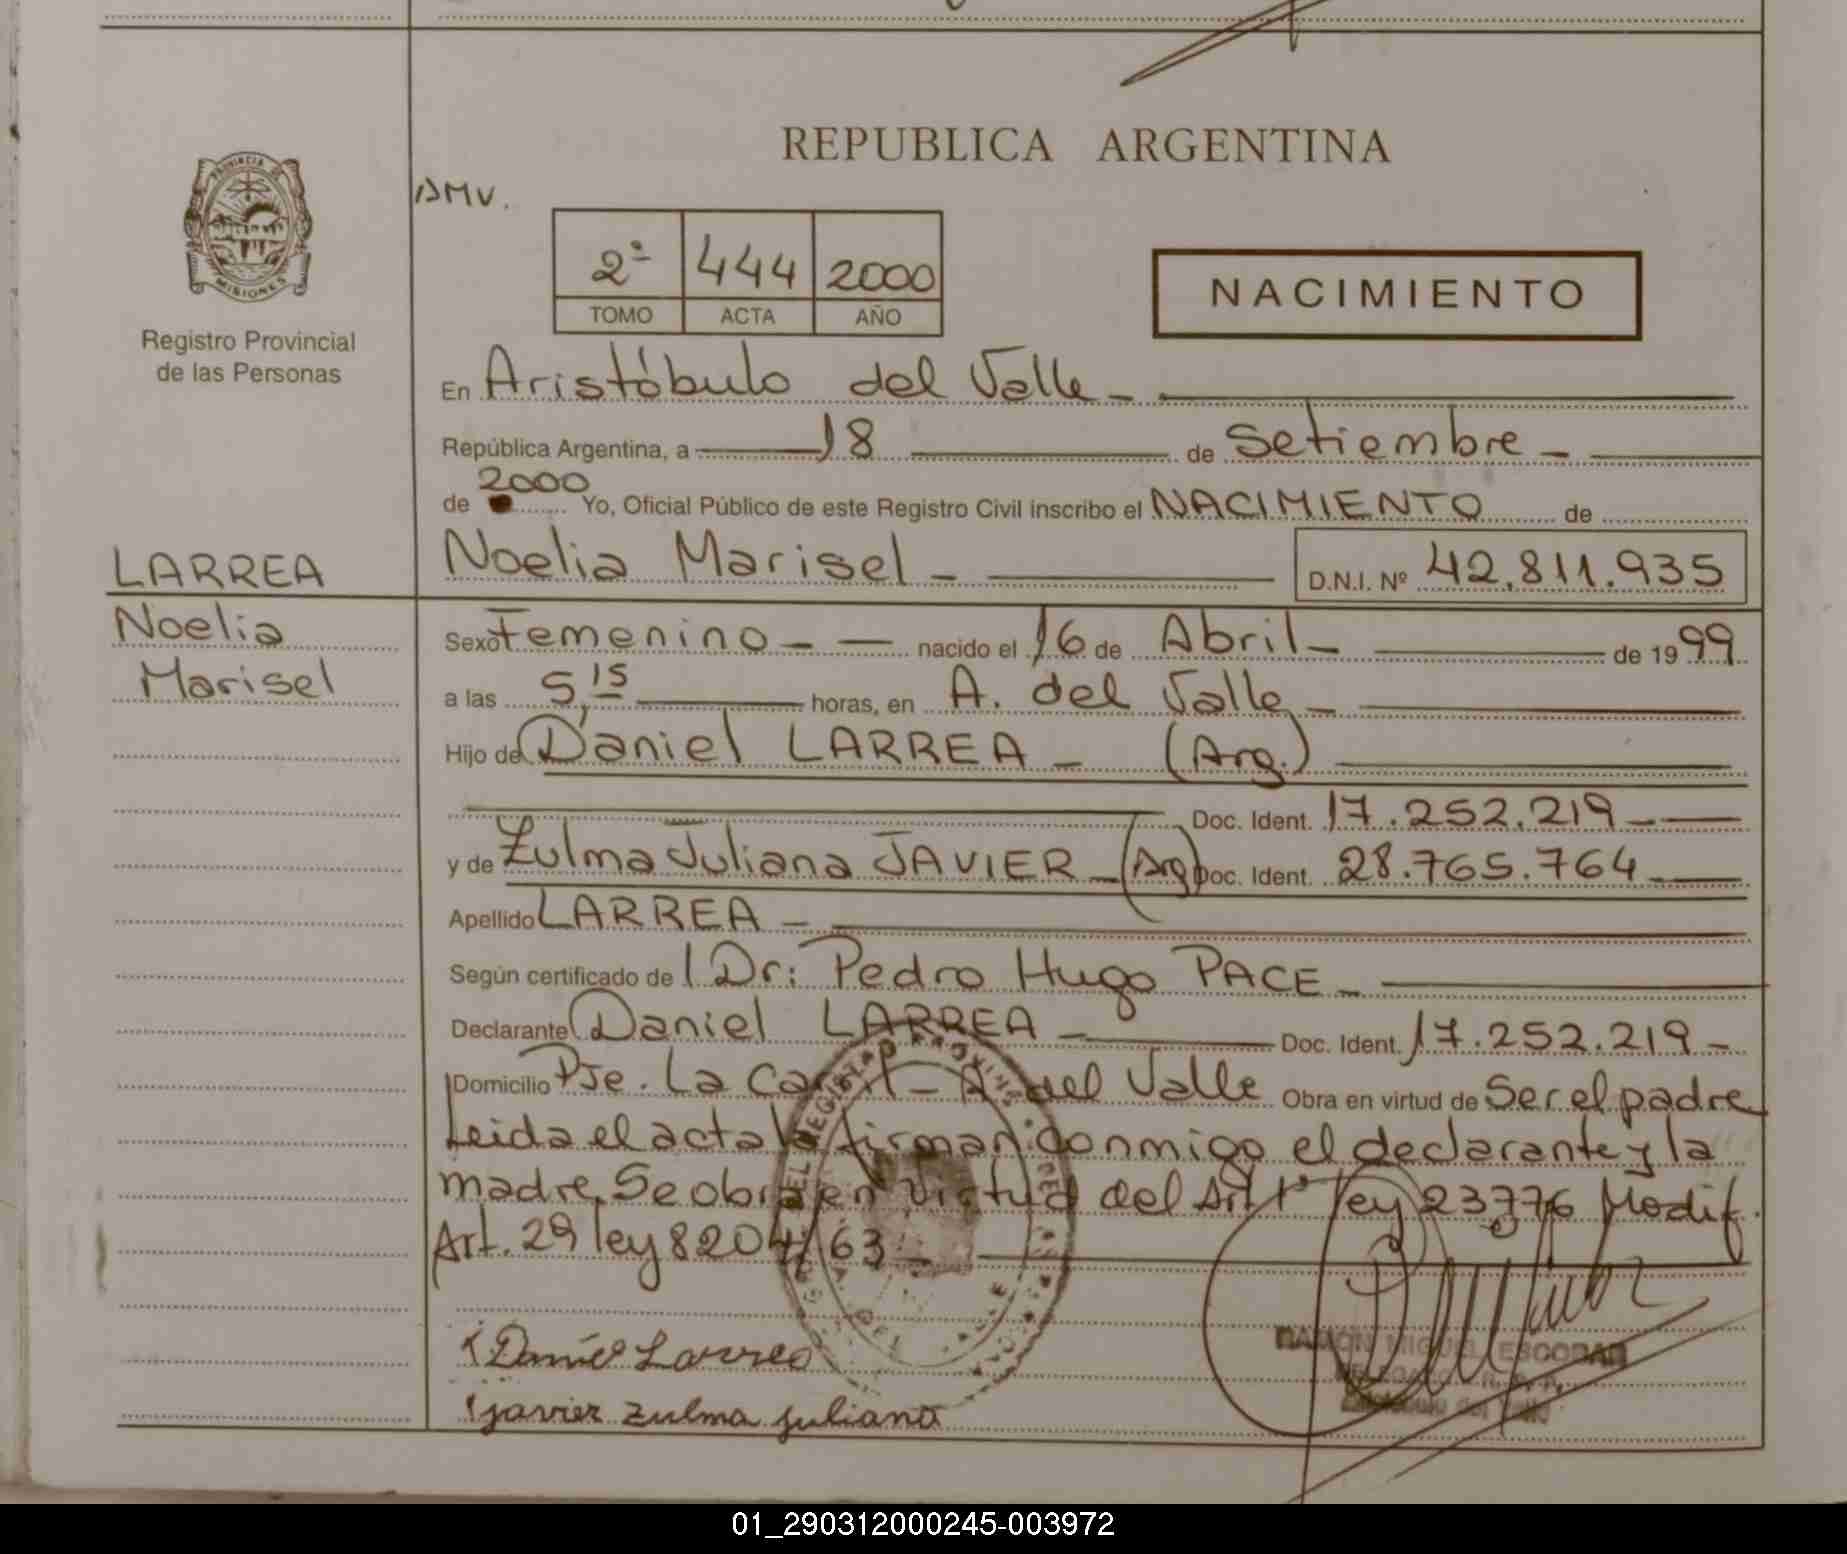 REPUBLICA ARGENTINA
PROVINCIA DE
MISIONES
Registro Provincial
de las Personas
AMV.
2ª 444 2000
TOMO ACTA AÑO
NACIMIENTO
En Aristóbulo del Valle -
República Argentina, a 18 de Setiembre -
de 2000 Yo, Oficial Público de este Registro Civil inscribo el NACIMIENTO de
LARREA
Noelia Marisel - D.N.I. Nº 42.811.935
Noelia
Marisel
Sexo Femenino - nacido el 16 de Abril - de 1999
a las 5,15 horas, en A. del Valle -
Hijo de Daniel LARREA - (Arg.)
Doc. Ident. 17.252.219 -
y de Zulma Juliana JAVIER - (Arg) Doc. Ident. 28.765.764
Apellido LARREA -
Según certificado de l Dr: Pedro Hugo PACE -
Declarante Daniel LARREA - Doc. Ident. 17.252.219 -
Domicilio Pje. La - A. del Valle Obra en virtud de Ser el padre
Leida el acta la firman conmigo el declarante y la
madre. Se obra en virtud del Art 1º ley 23776 Modif.
Art. 29 ley 8204/63 -
Daniel Larrea
Javier zulma juliana
RAMON MIGUEL ESCOBAR
DELEGADO R.P.P.
Aristobulo del Valle
01_290312000245-003972